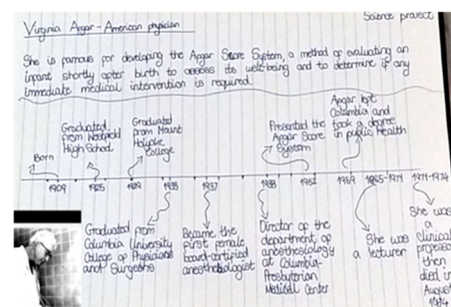 Science project
Virginia Apgar - American physician
She is famous for developing the Apgar Score System, a method of evaluating an
infant shortly after birth to assess its well-being and to determine if any
immediate medical intervention is required.
Born
Graduated
from Westfield
High School
Graduated
from Mount
Holyoke
College
Presented the
Apgar Score
System
Apgar left
Columbia and
took a degree
in public health
1909
1925
1929
1933
1937
1938
1952
1959
1965-1971
1971-1974
Graduated from
Columbia University
College of Physicians
and Surgeons
Became the
first female
board-certified
anesthesiologist
Director of the
department of
anesthesiology
at Columbia-
Presbyterian
Medical Center
She was
a lecturer
She was
a
clinical
professor
then
died in
August
1974